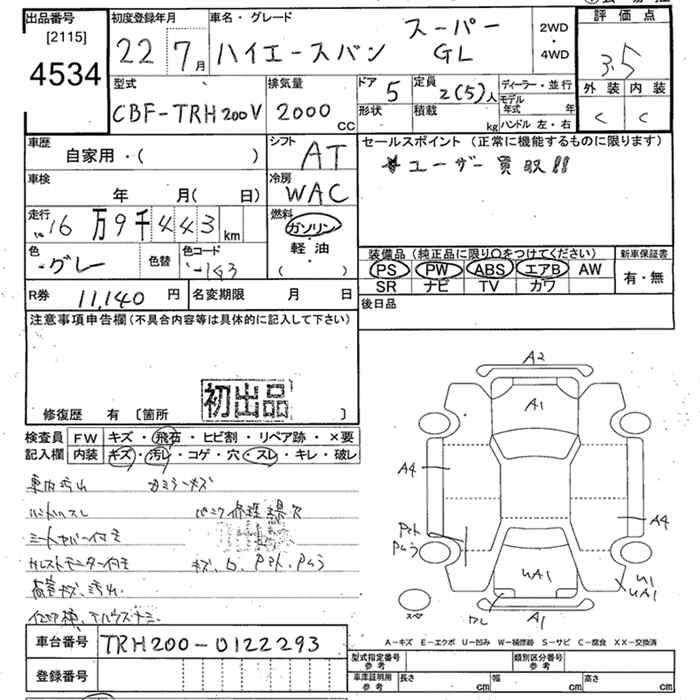 出品番号
[2115]
4534
初度登録年月
22 7月
車名・グレード
ハイエースバン スーパー GL
2WD
・
4WD
評価点
3.5
外装 内装
C C
型式
CBF-TRH200V
排気量
2000 CC
ドア 5
形状
定員 2(5)人
積載 kg
ディーラー・並行
モデル年式 年
ハンドル 左・右
車歴
自家用・( )
シフト
AT
セールスポイント(正常に機能するものに限ります)
ユーザー買取!!
車検
年 月( 日)
冷房
WAC
走行
16万9千443 km
燃料
ガソリン
軽・油
( )
色
グレ
色替
色コード
装備品(純正品に限り○をつけてください)
PS PW ABS エアB AW
SR ナビ TV カワ
新車保証書
有・無
R券 11,140円
名変期限 月 日
後日品
注意事項申告欄(不具合内容等は具体的に記入して下さい)
初出品
修復歴 有〔箇所 〕
検査員記入欄
FW キズ・飛石・ヒビ割・リペア跡・×要
内装 キズ・汚レ・コゲ・穴・スレ・キレ・破レ
車内汚れ
ハンドルスレ
シートカバー付き
キズ、
A2
A1
A4
A4
UA1
U1
UA1
A1
スペア
A-キズ E-エクボ U-凹み W-補修跡 S-サビ C-腐食 XX-交換済
車台番号 TRH200-0122293
登録番号
型式指定番号
参考
類別区分番号
参考
車庫証明用
参考
長さ cm
幅 cm
高さ cm